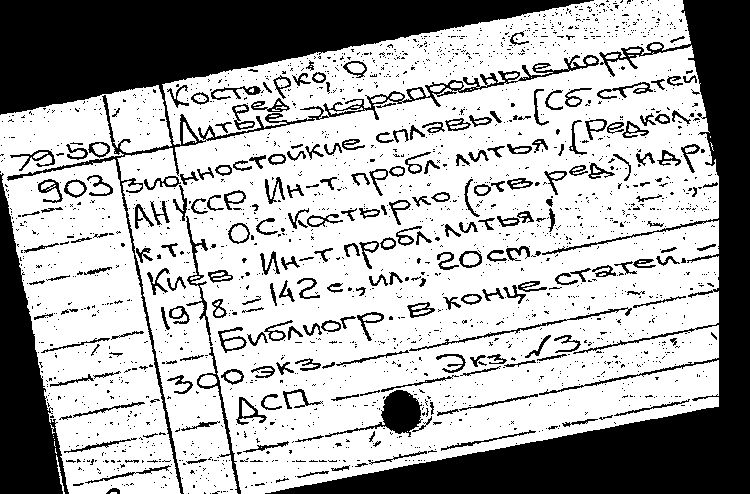 Костырко, О С
ред.
79-50к Литые жаропрочные корро-
903 зионностойкие сплавы: [Сб. статей
АН УССР, Ин-т пробл. литья; [Редкол.:
к.т.н. О.С. Костырко (отв. ред.) и др.]
Киев: Ин-т пробл. литья;
1978. – 142 с., ил.; 20 cm.
Библиогр. в конце статей. –
300 экз. Экз. №3
ДСП